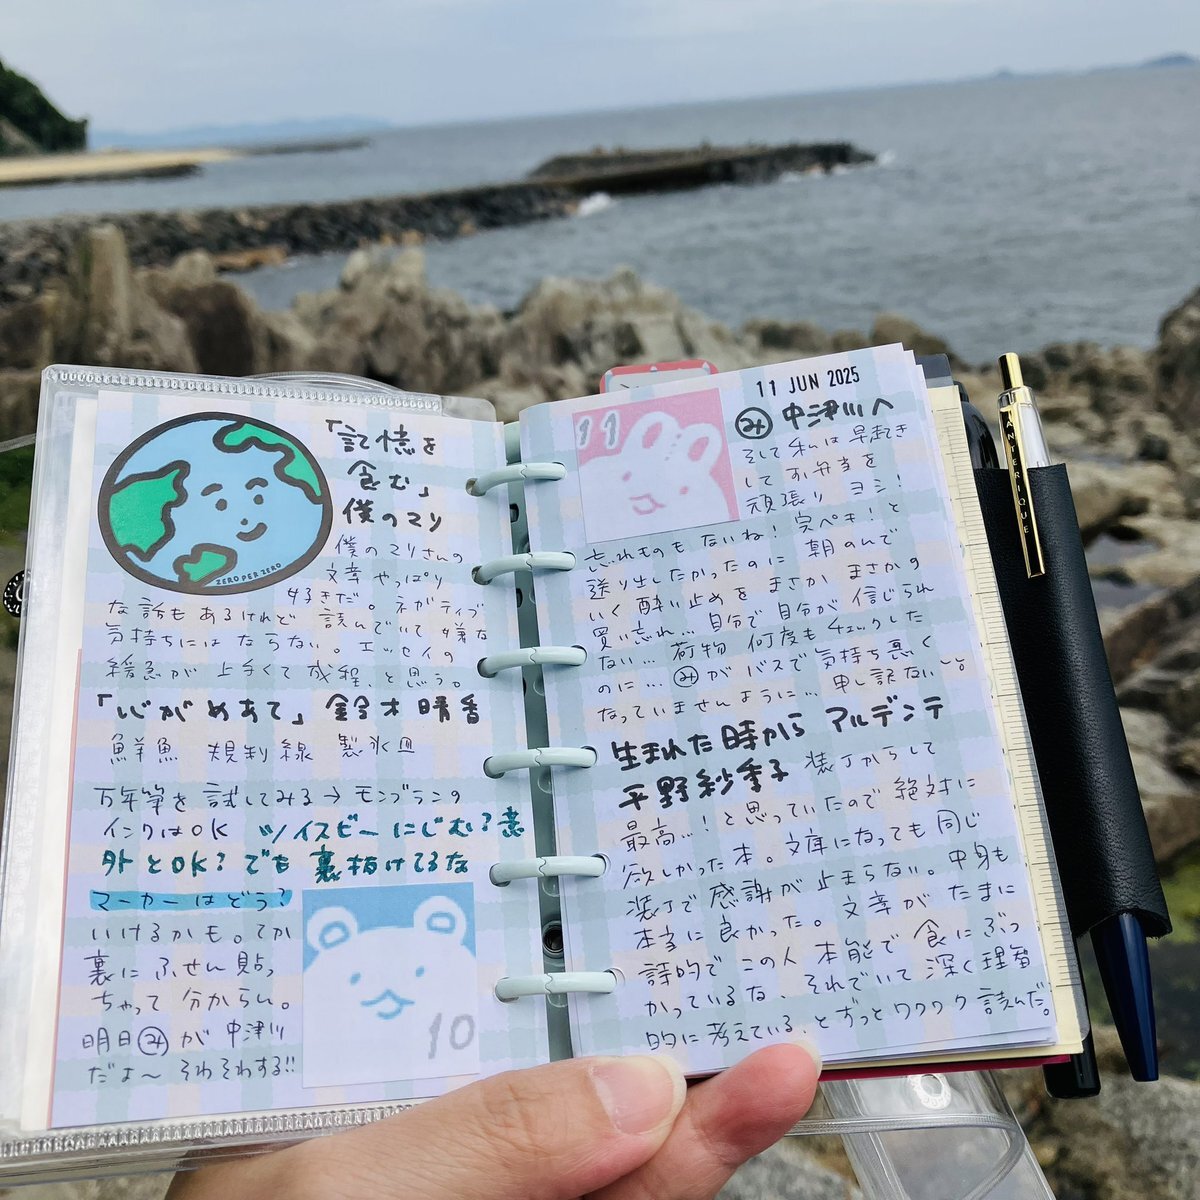 「記憶を
食む」
僕のマリ
僕のマリさんの
文章やっぱり
好きだ。ネガティブ
な話もあるけれど 読んでいて嫌な
気持ちにはならない。エッセイの
緩急が上手くて成程、と思う。
ZERO PER ZERO
「心がめあて」鈴木晴香
鮮魚 規制線 製氷皿
万年筆を試してみる→モンブランの
インクはOK ツイスビーにじむ?意
外とOK?でも裏抜けてるな
マーカーはどう?
いけるかも。てか
裏にふせん貼っ
ちゃって分からん。
明日み が 中津川
だよ〜 そわそわする!!
10
11 JUN 2025
11
み 中津川へ
そして私は早起き
してお弁当を
頑張り ヨシ!
忘れものもないね!完ペキ!と
送り出したかったのに 朝のんで
いく酔い止めをまさか まさかの
買い忘れ…自分で自分が信じられ
ない… 荷物 何度もチェックした
のに… み がバスで気持ち悪く
なっていませんように… 申し訳ない。
生まれた時から アルデンテ
平野紗季子 装丁からして
最高…!と思っていたので絶対に
欲しかった本。文庫になっても同じ
装丁で感謝が止まらない。中身も
本当に良かった。文章がたまに
詩的でこの人 本能で食にぶつ
かっているな、それでいて深く理智
的に考えている、とずっとワクワク読んだ。
ANTERIQUE